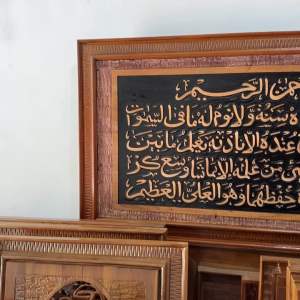 حمن الرحيم
ه سنة ولا نوم له ما في السموات
عنده الا باذنه يعلم ما بين
شيء من علمه الا بما شاء وسع كر
حفظهما وهو العلي العظيم